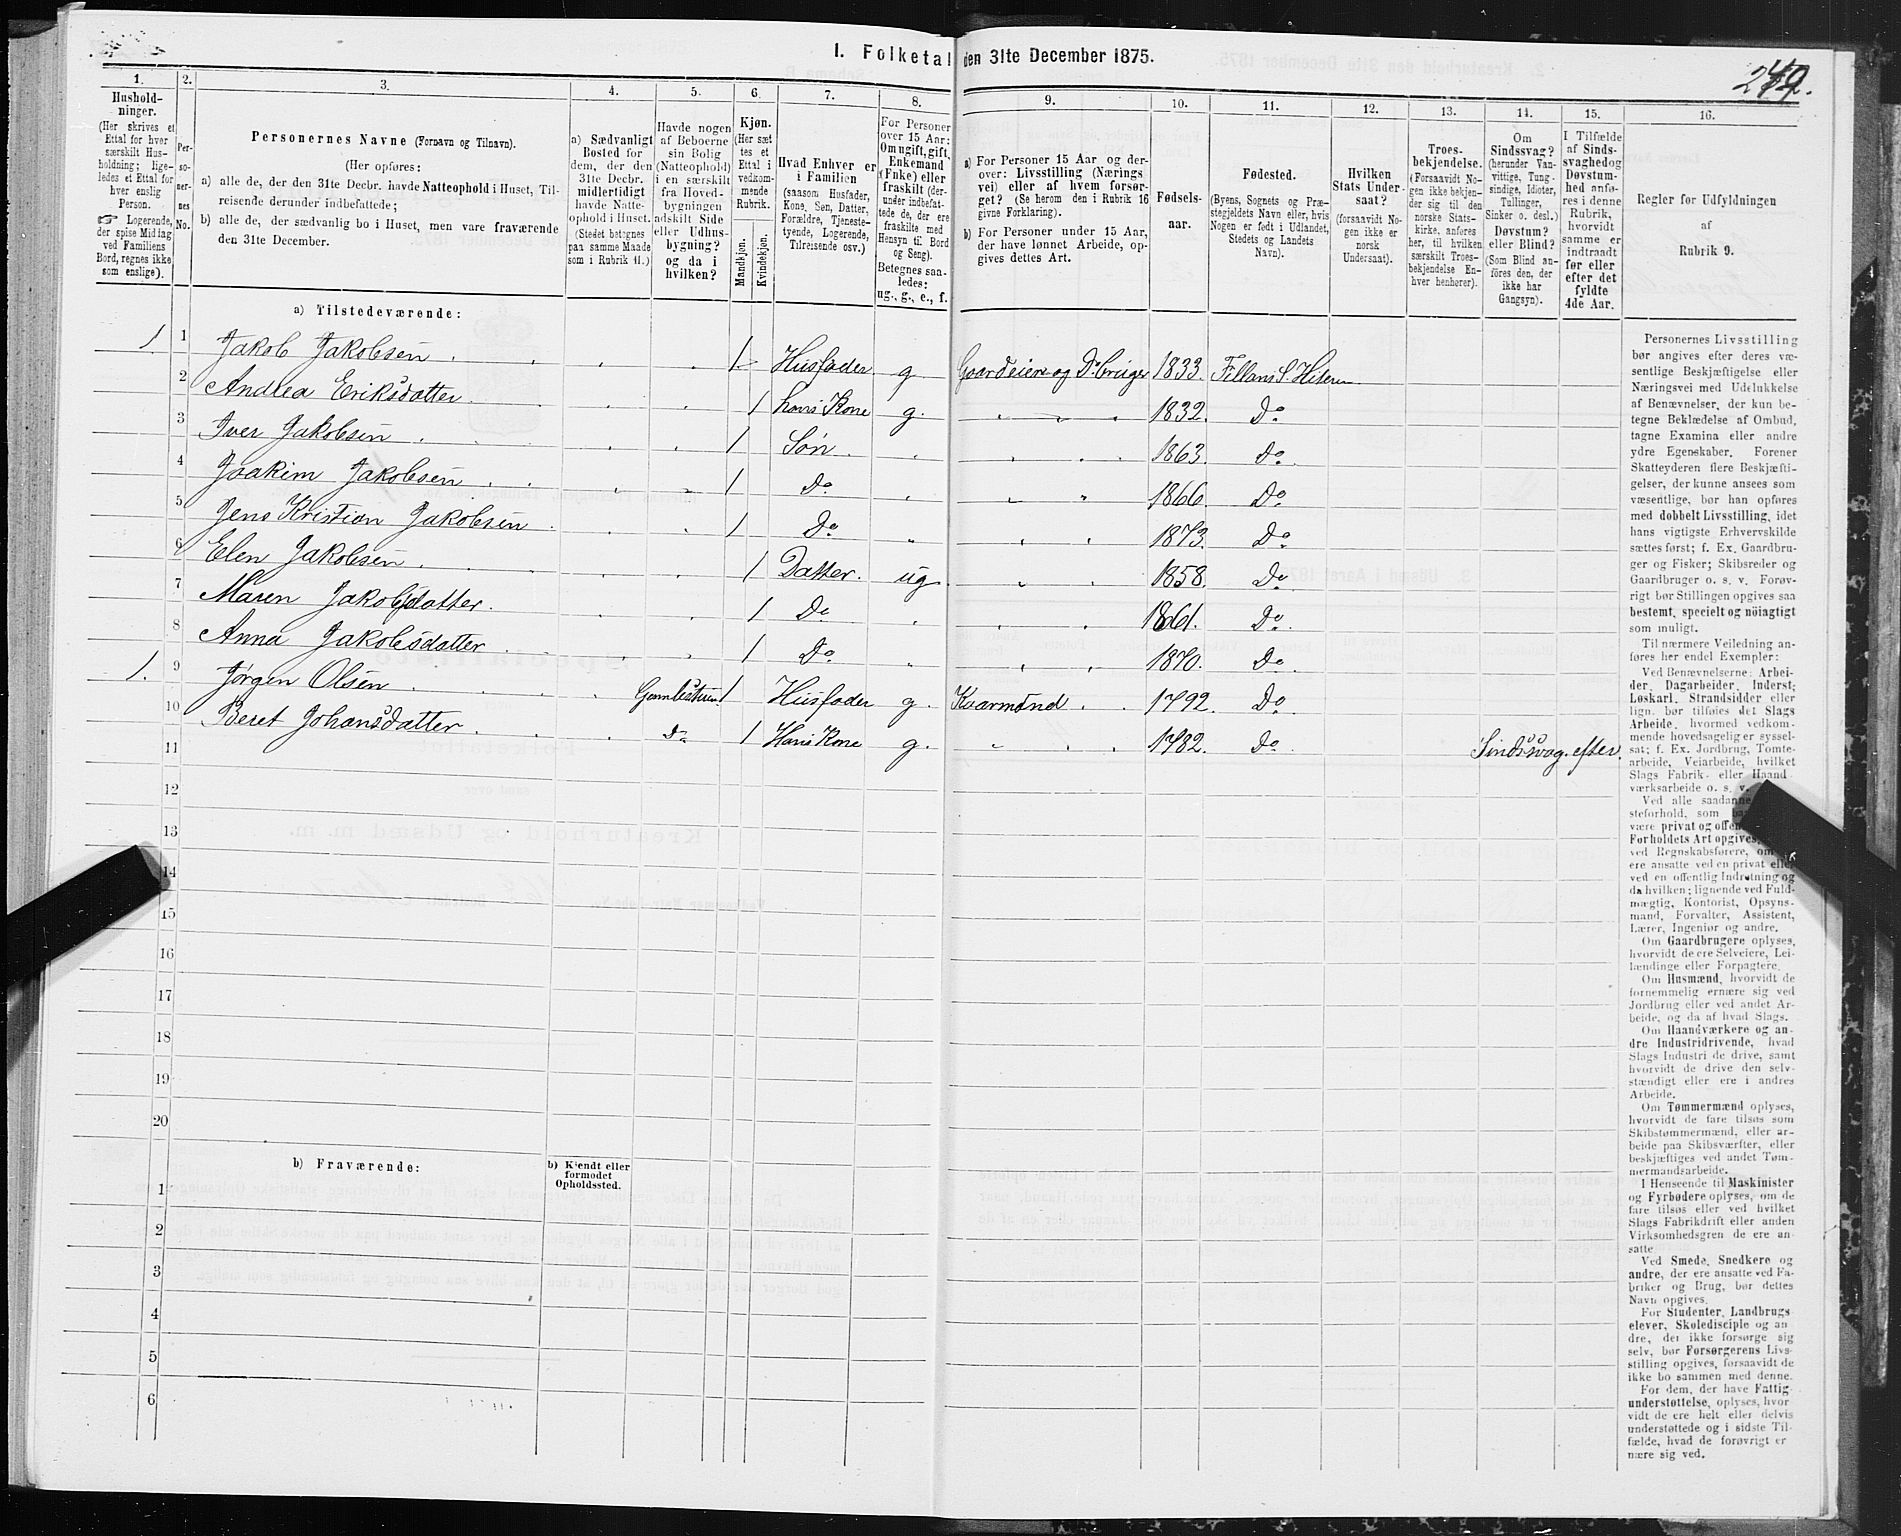 I. Folketal den 31te December 1875.
249.
1.
Hushold-
ninger.
(Her skrives et
Ettal for hver
særskilt Hus-
holdning; lige-
ledes et Ettal for
hver enslig
Person.
☞ Logerende,
der spise Middag
ved Familiens
Bord, regnes ikke
som enslige).
2.
Per-
so-
ner-
nes
No.
3.
Personernes Navne (Fornavn og Tilnavn).
(Her opføres:
a) alle de, der den 31te Decbr. havde Natteophold i Huset, Til-
reisende derunder indbefattede;
b) alle de, der sædvanlig bo i Huset, men vare fraværende
den 31te December.
4.
a) Sædvanligt
Bosted for
dem, der den
31te Decbr.
midlertidigt
havde Natte-
ophold i Huset.
(Stedet betegnes
paa samme Maade
som i Rubrik 11.)
5.
Havde nogen
af Beboerne
sin Bolig
(Natteophold)
i en særskilt
fra Hoved-
bygningen
adskilt Side
eller Udhus-
bygning?
og da i
hvilken?
6.
Kjøn.
(Her sæt
tes et
Ettal i
vedkom-
mende
Rubrik.
Mandkjøn.
Kvindekjøn.
7.
Hvad Enhver er
i Familien
(saasom Husfader,
Kone, Søn, Datter,
Forældre, Tjeneste-
tyende, Logerende,
Tilreisende osv.)
8.
For Personer
over 15 Aar:
Om ugift, gift,
Enkemand
(Enke) eller
fraskilt (der-
under indbefat-
tede de, der ere
fraskilte med
Hensyn til Bord
og Seng).
Betegnes saa-
ledes:
ug., g., e., f.
9.
a) For Personer 15 Aar og der-
over: Livsstilling (Nærings
vei) eller af hvem forsør-
get? (Se herom den i Rubrik 16
givne Forklaring).
b) For Personer under 15 Aar,
der have lønnet Arbeide, op-
gives dettes Art.
10.
Fødsels-
aar.
11.
Fødested.
(Byens, Sognets og Præ-
stegjeldets Navn eller, hvis
Nogen er født i Udlandet,
Stedets og Landets
Navn).
12.
Hvilken
Stats Under-
saat?
(forsaavidt No-
gen ikke er
norsk
Undersaat).
13.
Troes-
bekjendelse.
(Forsaavidt No-
gen ikke bekjen-
der sig til den
norske Stats-
kirke, anføres
her, til hvilken
særskilt Troes-
bekjendelse En-
hver henhører).
14.
Om
Sindssvag?
(herunder Van-
vittige, Tung-
sindige, Idioter,
Tullinger,
Sinker o. desl.)
Døvstum?
eller Blind?
(Som Blind an-
føres den, der
ikke har
Gangsyn).
15.
I Tilfælde
af Sinds-
svaghed og
Døvstum-
hed anfø-
res i denne
Rubrik,
hvorvidt
samme er
indtraadt
før eller
efter det
fyldte
4de Aar.
16.
Regler for Udfyldningen
af
Rubrik 9.
a) Tilstedeværende:
1. 1 Jakob Jakobsen 1 Husfader g Gaardeier og D. bruger 1833. Fillans S. Hiteren
2 Andrea Eriksdatter 1 hans Kone g. 1832. Do
3 Iver Jakobsen 1 Søn. 1863. Do.
4 Joakim Jakobsen 1 Do 1866. Do
5 Jens Kristian Jakobsen 1 Do 1873. Do
6 Elen Jakobsen 1 Datter. ug 1858. Do
7 Maren Jakobsdatter. 1 Do 1861. Do
8 Anna Jakobsdatter 1 Do 1870. Do
1. 9 Jørgen Olsen Gamlestuen 1 Husfader g. Kaarmand 1792. Do
10 Beret Johansdatter Do 1 Hans Kone g. 1782. Do Sindssvag. efter.
11
12
13
14
15
16
17
18
19
20
b) Fraværende:
b) Kjendt eller
formodet
Opholdssted.
1
2
3
4
5
6
Personernes Livsstilling
bør angives efter deres væ-
sentlige Beskjæftigelse eller
Næringsvei med Udelukkelse
af Benævnelser, der kun be-
tegne Beklædelse af Ombud,
tagne Examina eller andre
ydre Egenskaber. Forener
Skatteyderen flere Beskjæfti-
gelser, der kunne ansees som
væsentlige, bør han opføres
med dobbelt Livsstilling, idet
hans vigtigste Erhvervskilde
sættes først; f. Ex. Gaardbru-
ger og Fisker; Skibsreder og
Gaardbruger o. s. v. Forøv-
rigt bør Stillingen opgives saa
bestemt, specielt og nöiagtigt
som muligt.
Til nærmere Veiledning an-
føres her endel Exempler:
Ved Benævnelserne: Arbei-
der, Dagarbeider, Inderst;
Løskarl, Strandsidder eller
lign. bør tilføies det Slags
Arbeide, hvormed vedkom-
mende hovedsagelig er syssel-
sat; f. Ex. Jordbrug, Tomte-
arbeide, Veiarbeide, hvilket
Slags Fabrik- eller Haand-
værksarbeide o. s. v.
Ved alle saadanne
steforhold, som
være privat og offen
Forholdets Art opgives,
ved Regnskabsførere, om
ere ansatte ved en privat eller
ved en offentlig Indretning og
da hvilken; lignende ved Fuld-
mægtig, Kontorist, Opsyns-
mand, Forvalter, Assistent,
Lærer, Ingeniør og andre.
Om Gaardbrugere oplyses,
hvorvidt de ere Selveiere, Lei-
lændinge eller Forpagtere.
Om Husmænd, hvorvidt de
fornemmelig ernære sig ved
Jordbrug eller ved andet Ar-
beide, og da af hvad Slags.
Om Haandværkere og an-
dre Industridrivende, hvad
Slags Industri de drive, samt
hvorvidt de drive den selv-
stændigt eller ere i andres
Arbeide.
Om Tømmermænd oplyses,
hvorvidt de fare tilsøs som
Skibstømmermænd, eller ar-
beide paa Skibsværfter, eller
beskjæftiges ved andet Tøm-
mermandsarbeide.
I Henseende til Maskinister
og Fyrbødere oplyses, om de
fare tilsøs eller ved hvilket
Slags Fabrikdrift eller anden
Virksomhedsgren de ere an-
satte
Ved Smede, Snedkere og
andre, der ere ansatte ved Fa-
briker og Brug, bør dettes
Navn opgives.
For Studenter, Landbrugs-
elever, Skoledisciple og an
dre, der ikke forsørge sig
selv, bør Forsørgerens Livs-
stilling opgives, forsaavidt de
ikke bo sammen med denne.
For dem, der have Fattig-
understøttelse, oplyses, hvor
vidt de ere helt eller delvis
understøttede og i sidste Til-
fælde, hvad de forøvrigt er
nære sig ved.